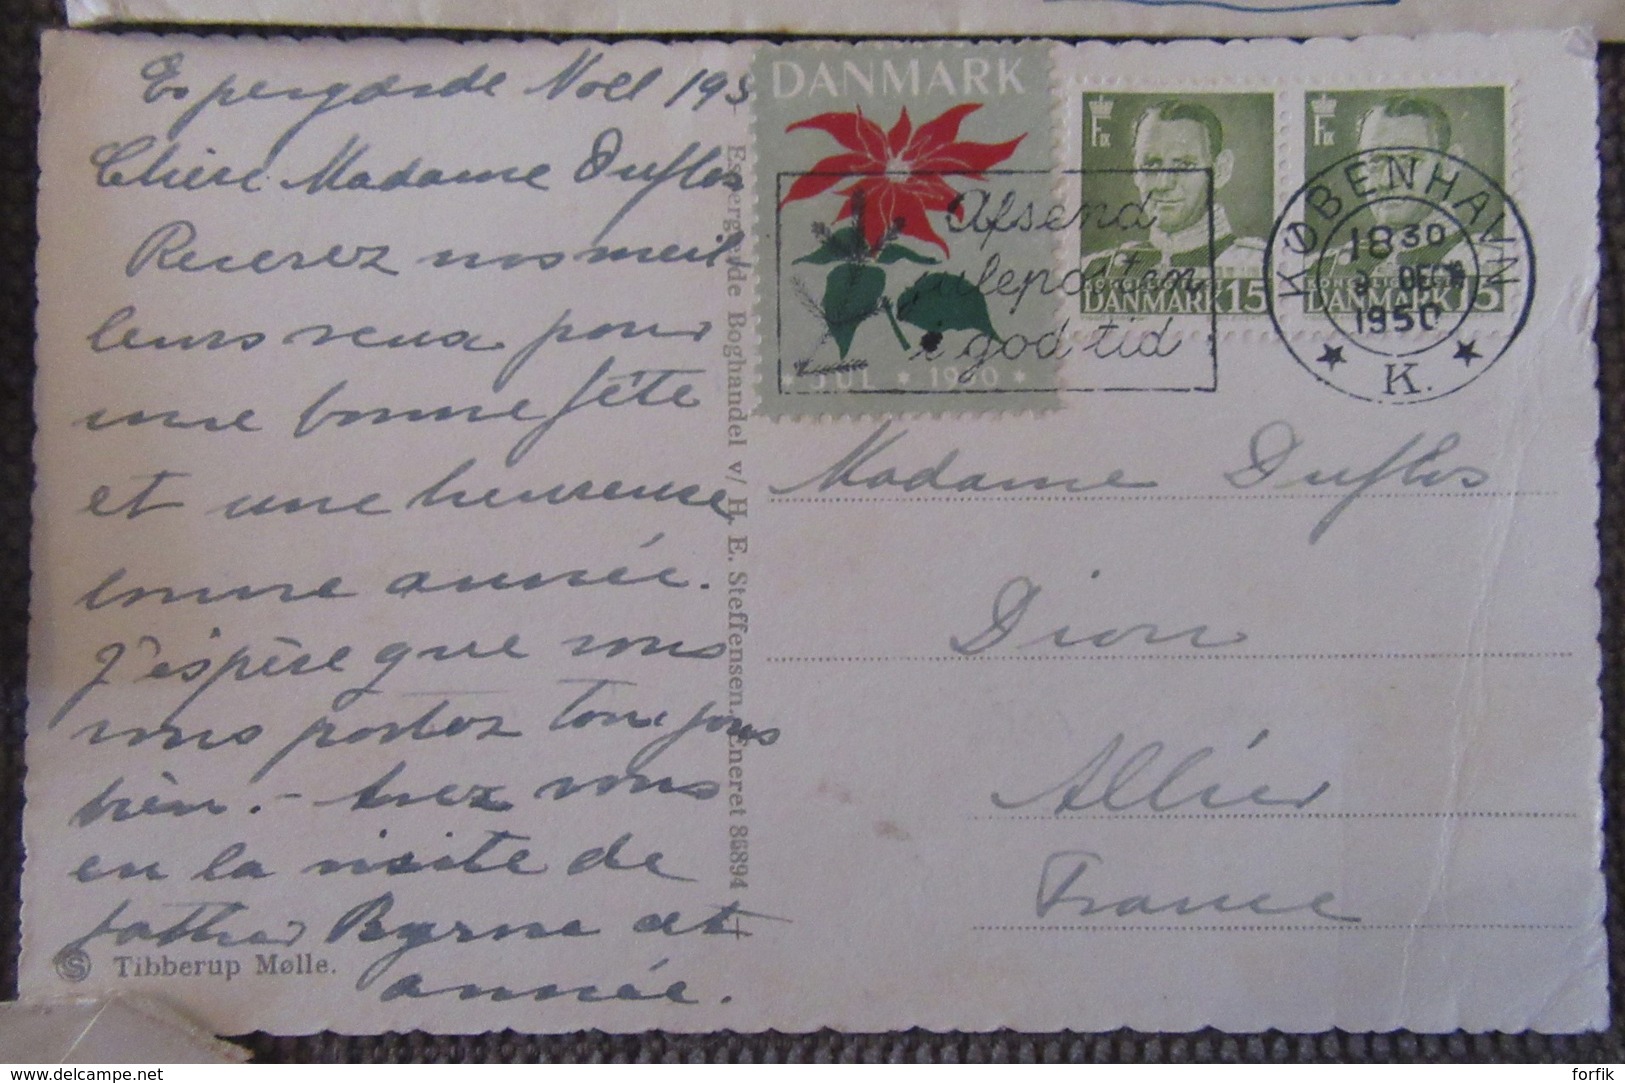 Espergærde Noël 195
Chère Madame Duflos
Recevez nos meil
leurs veux pour
une bonne fête
et une heureuse
bonne année.
J'espère que vous
vous portez toujours
bien. - Avez vous
eu la visite de
father Byrne cet
année.
Tibberup Mølle.
Espergærde Boghandel v/ H. E. Steffensen. Eneret 86894
DANMARK
* JUL * 1950 *
Afsend
juleposten
i god tid
DANMARK 15
DANMARK 15
KØBENHAVN
18 30
DEC
1950
K.
Madame Duflos
Dion
Allier
France
www.delcampe.net
forfik